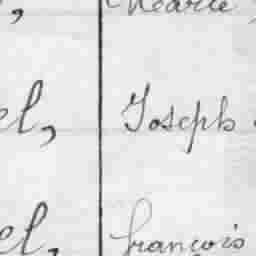 Marie
el, Joseph
el, François